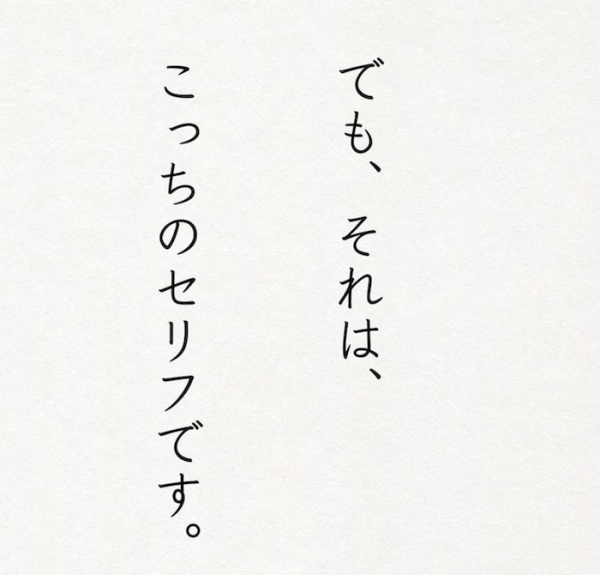 でも、それは、
こっちのセリフです。